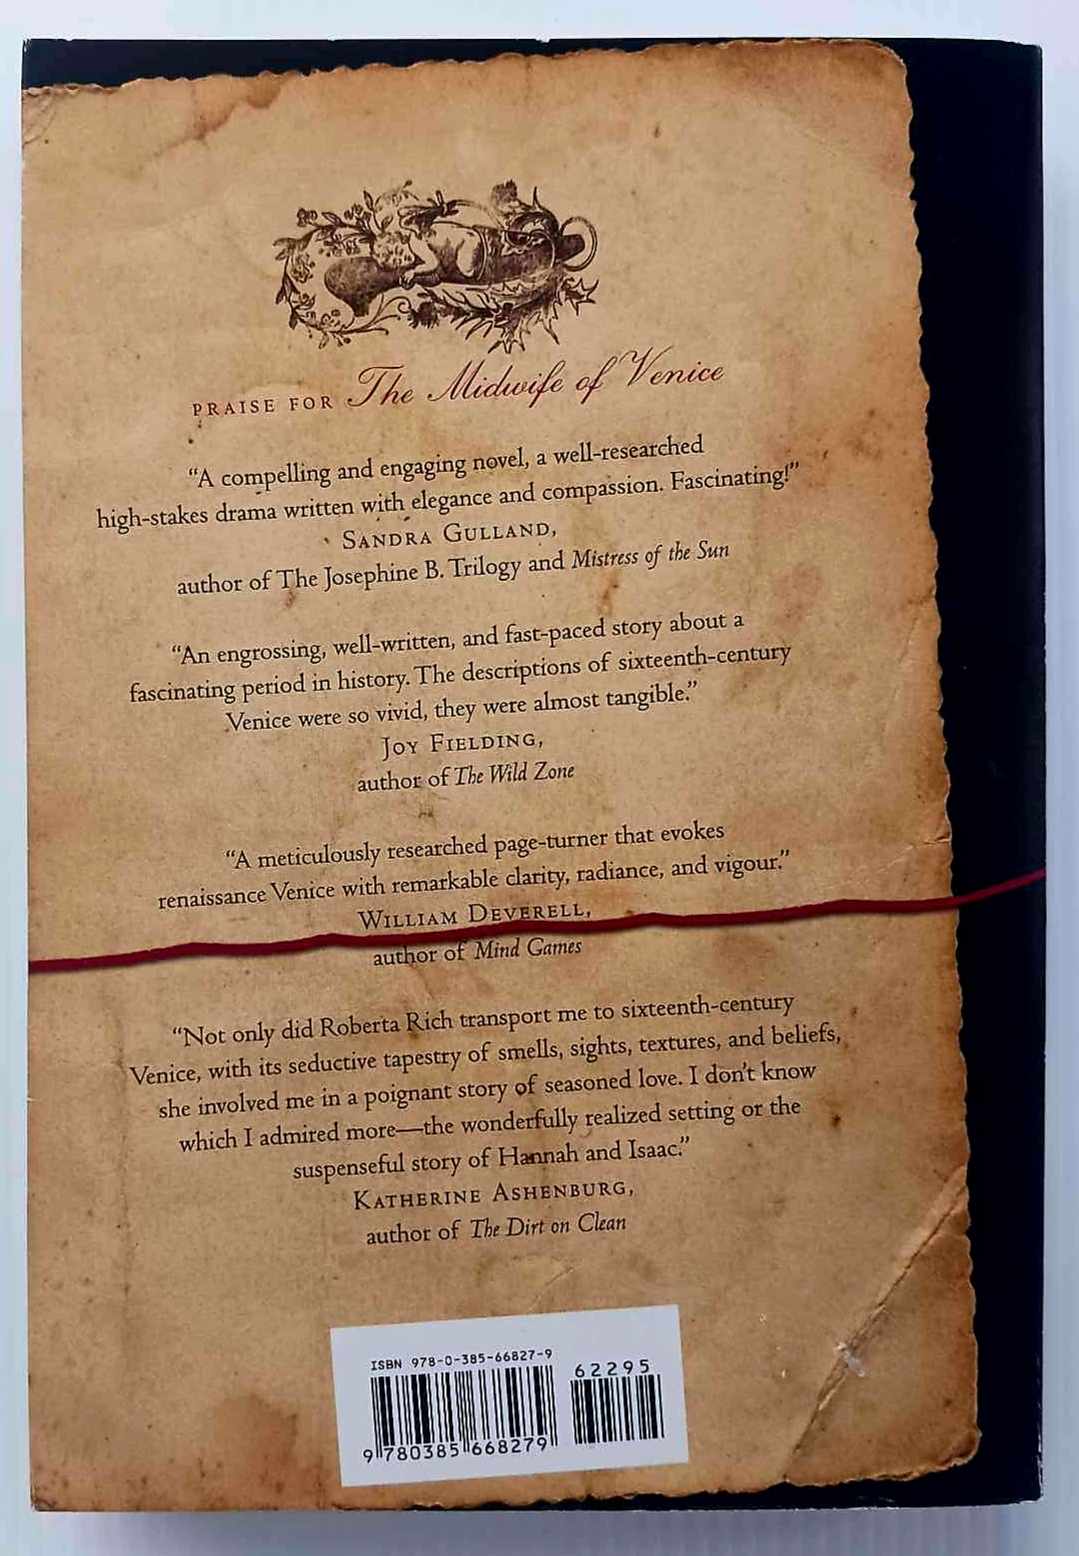 PRAISE FOR The Midwife of Venice
“A compelling and engaging novel, a well-researched
high-stakes drama written with elegance and compassion. Fascinating!”
SANDRA GULLAND,
author of The Josephine B. Trilogy and Mistress of the Sun
“An engrossing, well-written, and fast-paced story about a
fascinating period in history. The descriptions of sixteenth-century
Venice were so vivid, they were almost tangible.”
JOY FIELDING,
author of The Wild Zone
“A meticulously researched page-turner that evokes
renaissance Venice with remarkable clarity, radiance, and vigour.”
WILLIAM DEVERELL,
author of Mind Games
“Not only did Roberta Rich transport me to sixteenth-century
Venice, with its seductive tapestry of smells, sights, textures, and beliefs,
she involved me in a poignant story of seasoned love. I don’t know
which I admired more—the wonderfully realized setting or the
suspenseful story of Hannah and Isaac.”
KATHERINE ASHENBURG,
author of The Dirt on Clean
ISBN 978-0-385-66827-9
62295
9 780385 668279